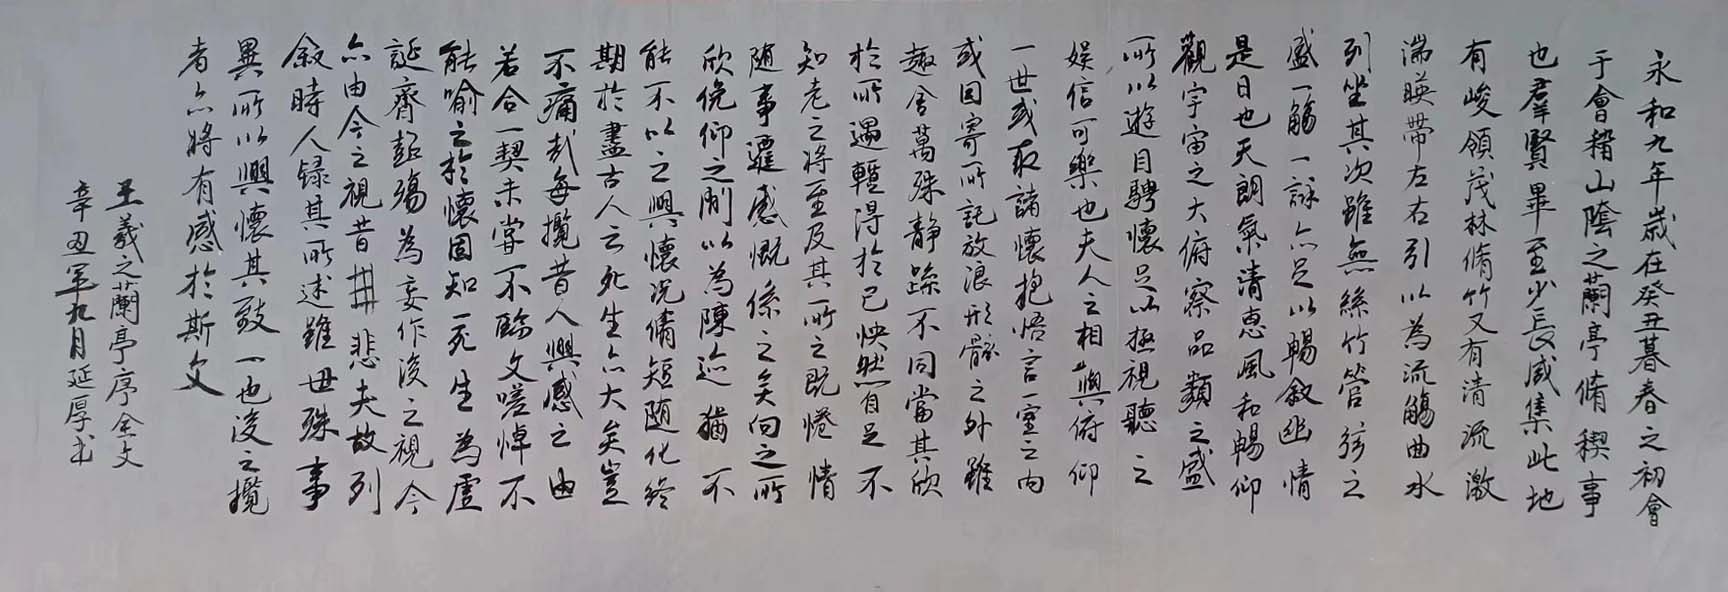 永和九年歲在癸丑暮春之初會
于會稽山隂之蘭亭脩稧事
也羣賢畢至少長咸集此地
有峻領茂林脩竹又有清流激
湍暎帶左右引以為流觴曲水
列坐其次雖無絲竹管弦之
盛一觴一詠亦足以暢敘幽情
是日也天朗氣清惠風和暢仰
觀宇宙之大俯察品類之盛
所以遊目騁懷足以極視聽之
娱信可樂也夫人之相與俯仰
一世或取諸懷抱悟言一室之内
或因寄所託放浪形骸之外雖
趣舍萬殊静躁不同當其欣
於所遇蹔得於己怏然自足不
知老之將至及其所之既惓情
随事遷感慨係之矣向之所
欣俛仰之閒以為陳迹猶不
能不以之興懷况脩短随化終
期於盡古人云死生亦大矣豈
不痛哉每攬昔人興感之由
若合一契未嘗不臨文嗟悼不
能喻之於懷固知一死生為虚
誕齊彭殤為妄作後之視今
亦由今之視昔 悲夫故列
敘時人録其所述雖世殊事
異所以興懷其致一也後之攬
者亦將有感於斯文
王羲之蘭亭序全文
辛丑年九月延厚书